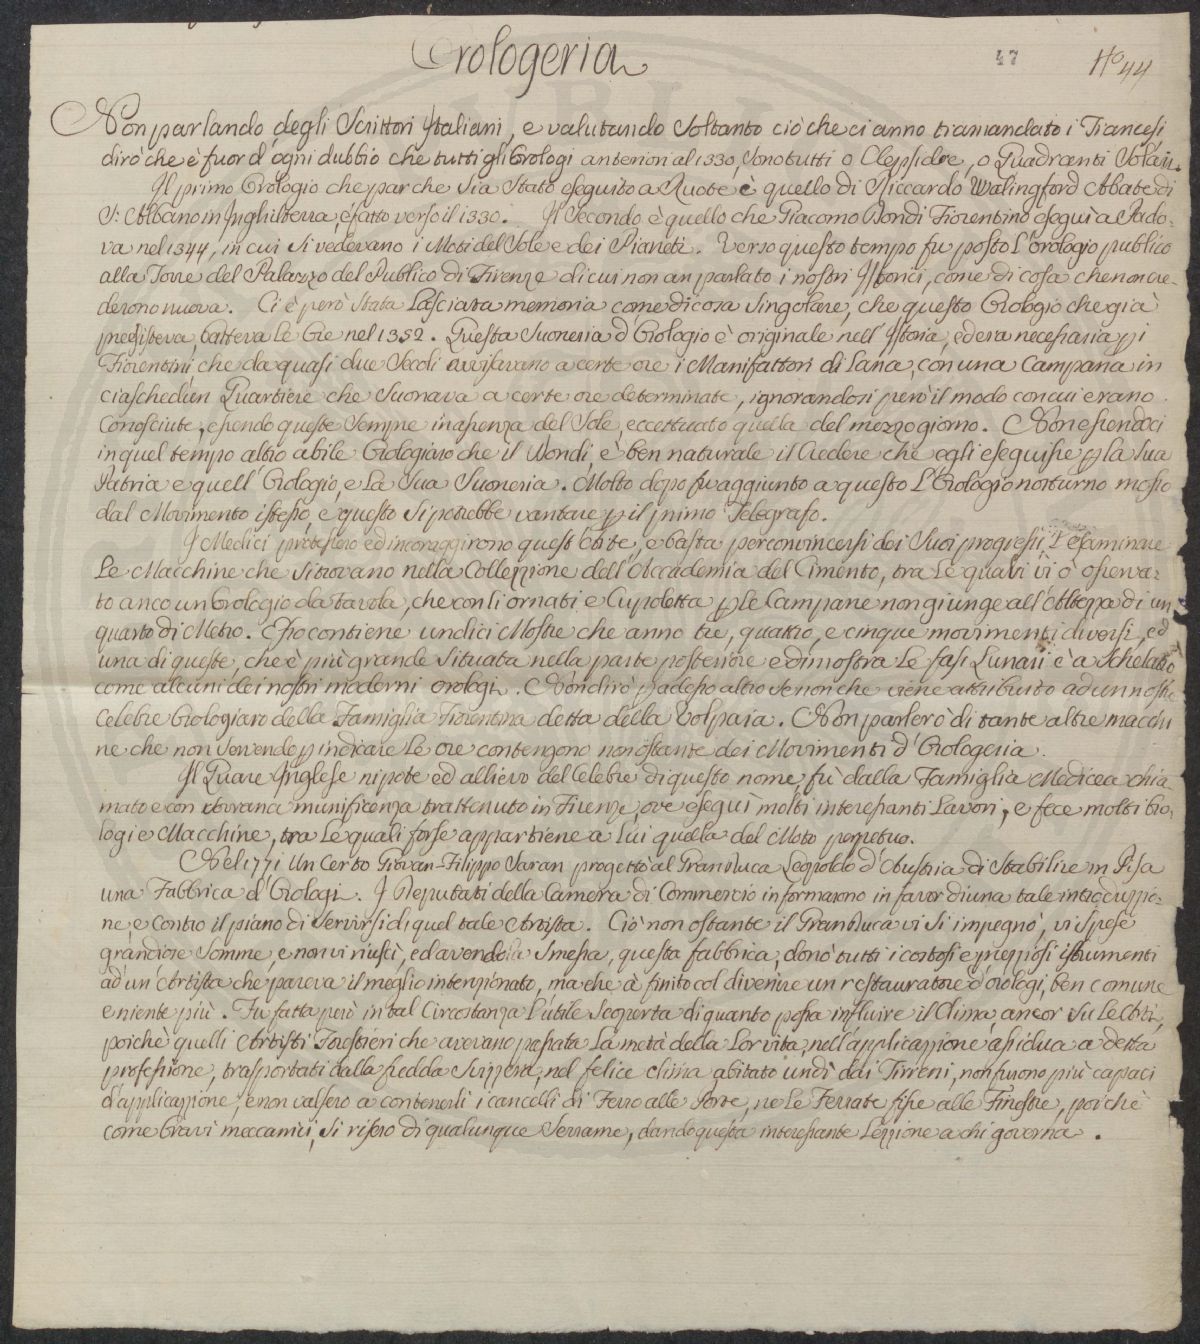 Orologeria
47
No 44
Non parlando degli Scrittori Italiani, e valutando Soltanto ciò che ci anno tramandato i Francesi
dirò che è fuor d'ogni dubbio che tutti gli Orologi anteriori al 1330, Sono tutti o Clepsidre, o Quadranti Solari.
Il primo Orologio che par che Sia Stato eseguito a Ruote è quello di Riccardo Walingford Abate di
S: Albano in Inghilterra, e fatto verso il 1330. Il Secondo è quello che Giacomo Dondi Fiorentino eseguì a Pado-
va nel 1344, in cui Si vedevano i Moti del Sole e dei Pianeti. Verso questo tempo fu posto L'orologio publico
alla Torre del Palazzo del Publico di Firenze di cui non an parlato i nostri Istorici, come di cosa che non cre-
derono nuova. Ci è però Stata Lasciata memoria come di cosa Singolare, che questo Orologio che già
preesisteva batteva Le Ore nel 1352. Questa Suoneria d'Orologio è originale nell'Istoria, ed era necessaria pi
Fiorentini che da quasi due Secoli avvisavano a certe ore i Manifattori di Lana, con una Campana in
ciaschedun Quartiere che Suonava a certe ore determinate, ignorandosi però il modo con cui erano
Conosciute, essendo queste Sempre in assenza del Sole, eccettuato quella del mezzo giorno. Non essendoci
in quel tempo altro abile Orologiaro che il Dondi, è ben naturale il Credere che egli eseguisse p la Sua
Patria e quell'Orologio, e La Sua Suoneria. Molto dopo fu aggiunto a questo L'Orologio notturno mosso
dal Movimento istesso, e questo Si potrebbe vantare p il primo Telegrafo.
I Medici protessero ed incoraggirono quest'Arte, e basta per convincersi dei Suoi progressi L'esaminare
Le Macchine che Si trovano nella Collezzione dell'Accademia del Cimento, tra Le quali vi ò osserva-
to anco un Orologio da Tavola, che con li ornati e Cupoletta p Le Campane non giunge all'Altezza di un
quarto di Metro. Esso contiene undici Mostre che anno tre, quattro, e cinque movimenti diversi, ed
una di queste, che è più grande Situata nella parte posteriore e dimostra Le fasi Lunari è a Schelatro
come alcuni dei nostri moderni orologi. Non dirò p adesso altro Se non che viene attribuito ad un nostro
Celebre Orologiaro della Famiglia Fiorentina detta della Volpaia. Non parlerò di tante altre macchi
ne che non Servendo p indicare Le ore contengono nonostante dei Movimenti d'Orologeria.
Il Quare Inglese nipote ed allievo del Celebre di questo nome, fù dalla Famiglia Medicea chia-
mato e con Sovrana munificenza trattenuto in Firenze, ove eseguì molti interessanti Lavori, e fece molti Oro-
logi e Macchine, tra Le quali forse appartiene a Lui quella del Moto perpetuo.
Nel 1771 Un Certo Giovan-Filippo Saran progettò al Granduca Leopoldo d'Austria di Stabilire in Pisa
una Fabbrica d'Orologi. I Deputati della Camera di Commercio informarono in favor di una tale introduzzio-
ne, e Contro il piano di Servirsi di quel tale Artista. Ciò non ostante il Granduca vi Si impegnò, vi Spese
grandiose Somme, e non vi riuscì, ed avendola Smessa, questa fabbrica, donò tutti i costosi e prezziosi istrumenti
ad un Artista che pareva il meglio intenzionato, ma che à finito col divenire un restauratore d'orologi, ben comune
e niente più. Fu fatta però in tal Circostanza L'utile Scoperta di quanto possa influire il Clima, ancor Su Le Arti,
poichè quelli Artisti Forestieri che avevano passata La metà della Lor vita, nell'applicazzione assidua a detta
professione, trasportati dalla fredda Svizzera, nel felice clima abitato un dì dai Tirreni, non furono più capaci
d'applicazzione, e non valsero a contenerli i cancelli di Ferro alle Porte, ne Le Ferrate fisse alle Finestre, poichè
come bravi meccanici, Si risero di qualunque Serrame, dando questa interessante Lezzione a chi governa.